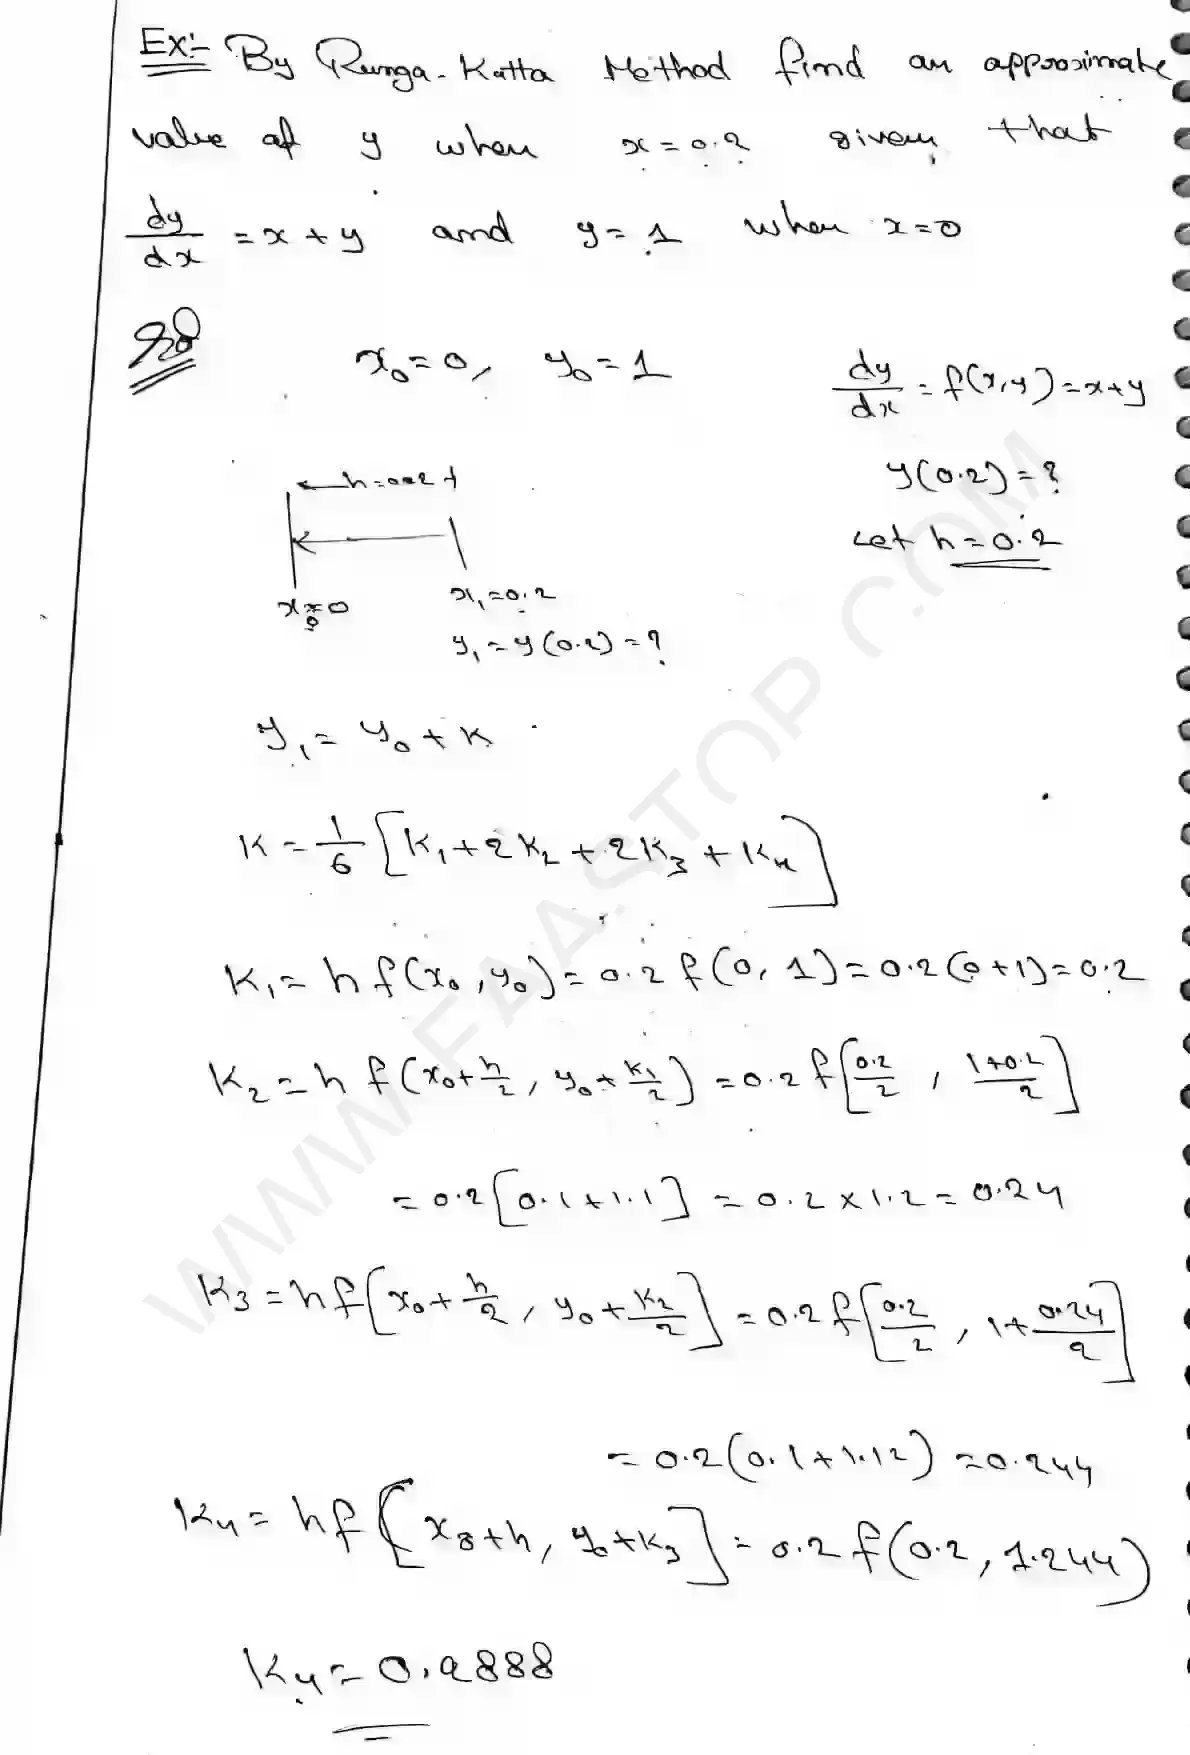 Ex:- By Runga-Kutta Method find an approximate
value of y when x = 0.2 given that
dy/dx = x + y and y = 1 when x = 0
Sol
x₀ = 0, y₀ = 1
dy/dx = f(x,y) = x+y
y(0.2) = ?
Let h = 0.2
h = 0.2
x₀ = 0
x₁ = 0.2
y₁ = y(0.2) = ?
y₁ = y₀ + K
K = 1/6 [K₁ + 2K₂ + 2K₃ + K₄]
K₁ = h f(x₀, y₀) = 0.2 f(0, 1) = 0.2(0+1) = 0.2
K₂ = h f(x₀ + h/2, y₀ + K₁/2) = 0.2 f[0.2/2, 1+0.2/2]
= 0.2[0.1 + 1.1] = 0.2 x 1.2 = 0.24
K₃ = hf[x₀ + h/2, y₀ + K₂/2] = 0.2 f[0.2/2, 1 + 0.24/2]
= 0.2(0.1 + 1.12) = 0.244
K₄ = hf[x₀ + h, y₀ + K₃] = 0.2 f(0.2, 1.244)
K₄ = 0.2888
WWW.FAASTOP.COM